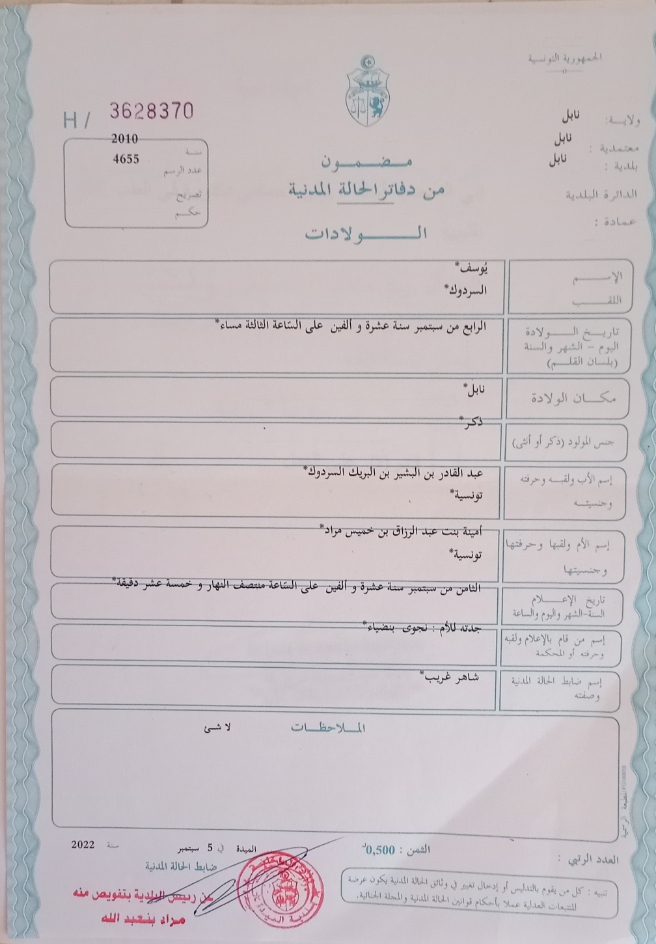 الجمهورية التونسية
ولاية: نابل
معتمدية : نابل
بلدية : نابل
الدائرة البلدية
عمادة :
H/ 3628370
سنة 2010
عدد الرسم 4655
تصريح
حكم
مضمون
من دفاتر الحالة المدنية
الولادات
الإسم يُوسف*
اللقب السردوك*
تاريخ الولادة الرابع من سبتمبر سنة عشرة و ألفين على السّاعة الثالثة مساء*
اليوم - الشهر والسنة
(بلسان القلم)
مكان الولادة نابل*
جنس المولود (ذكر أو أنثى) ذكر*
إسم الأب ولقبه وحرفته عبد القادر بن البشير بن البريك السردوك*
وجنسيته تونسية*
إسم الأم ولقبها وحرفتها أمينة بنت عبد الرزاق بن خميس مراد*
وجنسيتها تونسية*
تاريخ الإعلام الثامن من سبتمبر سنة عشرة و ألفين على السّاعة منتصف النهار و خمسة عشر دقيقة*
السنة-الشهر واليوم والساعة
إسم من قام بالإعلام ولقبه جدته للأم : نجوى بنضياء*
وحرفته أو المحكمة
إسم ضابط الحالة المدنية شاهر غريب*
وصفته
الملاحظات لا شئ
العدد الرتبي :
الثمن : 0,500د
الميدة في 5 سبتمبر سنة 2022
ضابط الحالة المدنية
عن رئيس البلدية بتفويض منه
مراد بنعبد الله
تنبيه : كل من يقوم بالتدليس أو إدخال تغيير في وثائق الحالة المدنية يكون عرضة
للتتبعات العدلية عملا بأحكام قوانين الحالة المدنية والمجلة الجنائية.